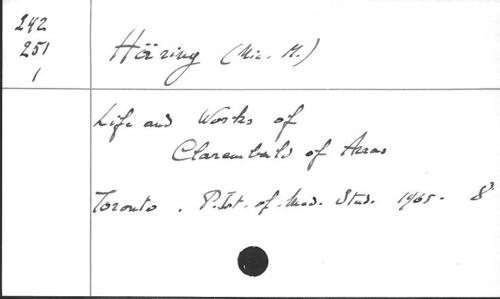 242
251
1
Häring (Nic. M.)
Life and Works of
Clarembald of Arras
Toronto. P.Inst. of Med. Stud. 1965. 8